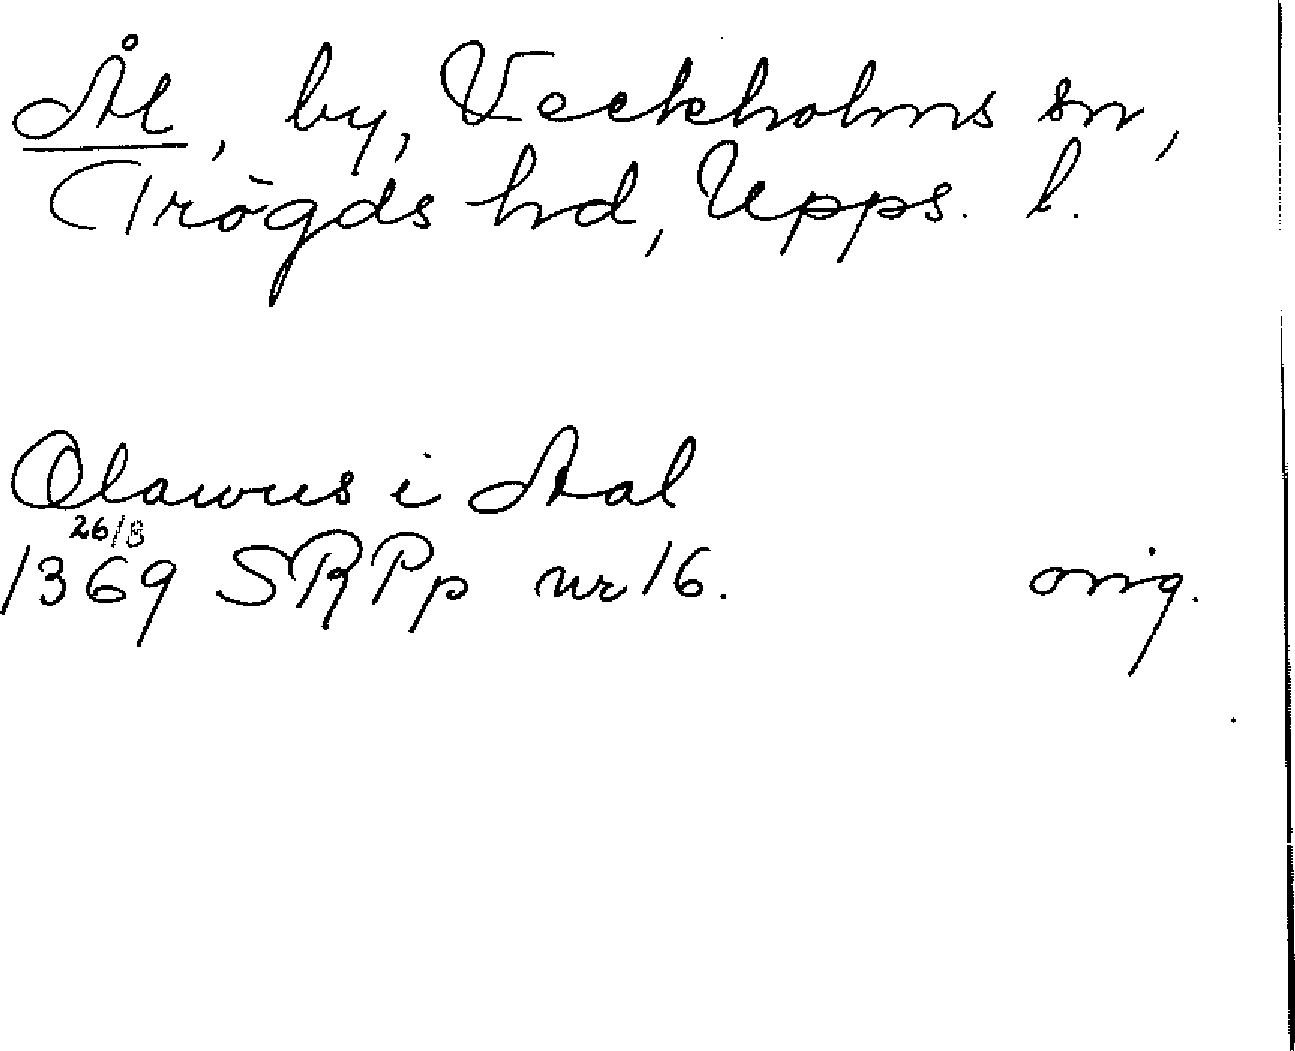 Ål, by, Veckholms sn,
Trögds hd, Upps. l.
Olawus i Aal
26/8
1369 SRPp nr 16. orig.